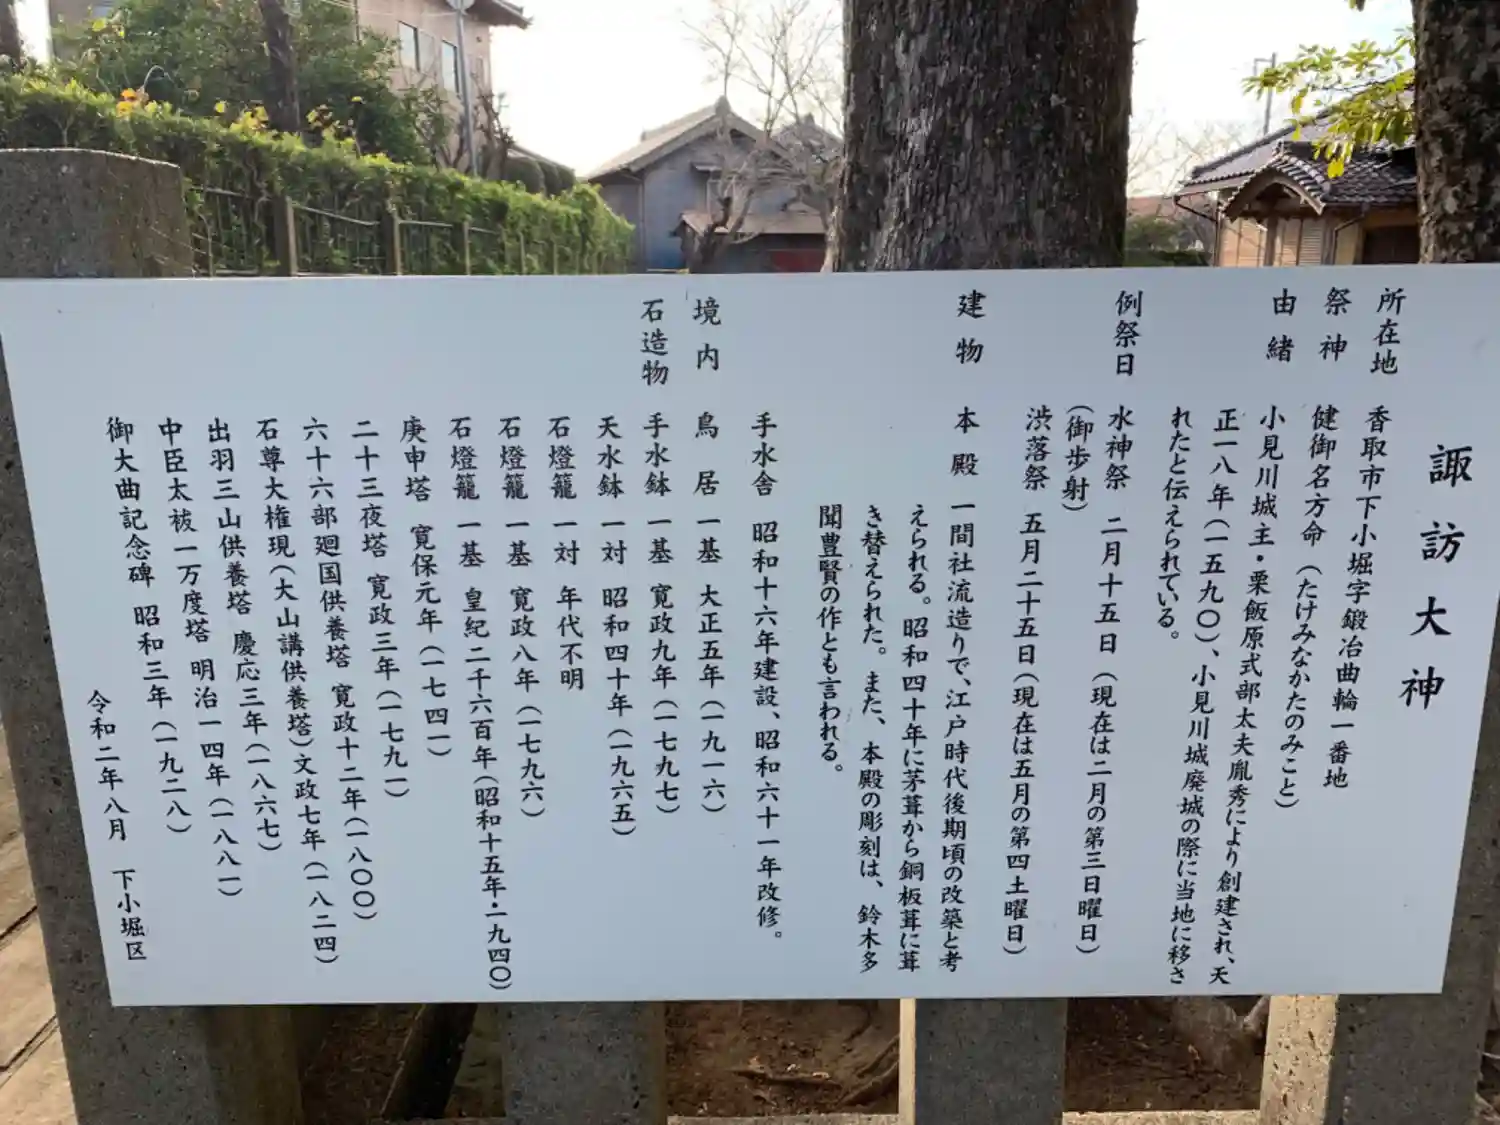 諏訪大神
所在地 香取市下小堀字鍛冶曲輪一番地
祭神 健御名方命（たけみなかたのみこと）
由緒 小見川城主・粟飯原式部太夫胤秀により創建され、天
正一八年（一五九〇）、小見川城廃城の際に当地に移さ
れたと伝えられている。
例祭日 水神祭 二月十五日（現在は二月の第三日曜日）
（御歩射）
渋落祭 五月二十五日（現在は五月の第四土曜日）
建物 本殿 一間社流造りで、江戸時代後期頃の改築と考
えられる。昭和四十年に茅葺から銅板葺に葺
き替えられた。また、本殿の彫刻は、鈴木多
聞豊賢の作とも言われる。
手水舎 昭和十六年建設、昭和六十一年改修。
境内 鳥居 一基 大正五年（一九一六）
石造物 手水鉢 一基 寛政九年（一七九七）
天水鉢 一対 昭和四十年（一九六五）
石燈籠 一対 年代不明
石燈籠 一基 寛政八年（一七九六）
石燈籠 一基 皇紀二千六百年（昭和十五年・一九四〇）
庚申塔 寛保元年（一七四一）
二十三夜塔 寛政三年（一七九一）
六十六部廻国供養塔 寛政十二年（一八〇〇）
石尊大権現（大山講供養塔）文政七年（一八二四）
出羽三山供養塔 慶応三年（一八六七）
中臣太祓一万度塔 明治一四年（一八八一）
御大曲記念碑 昭和三年（一九二八）
令和二年八月 下小堀区